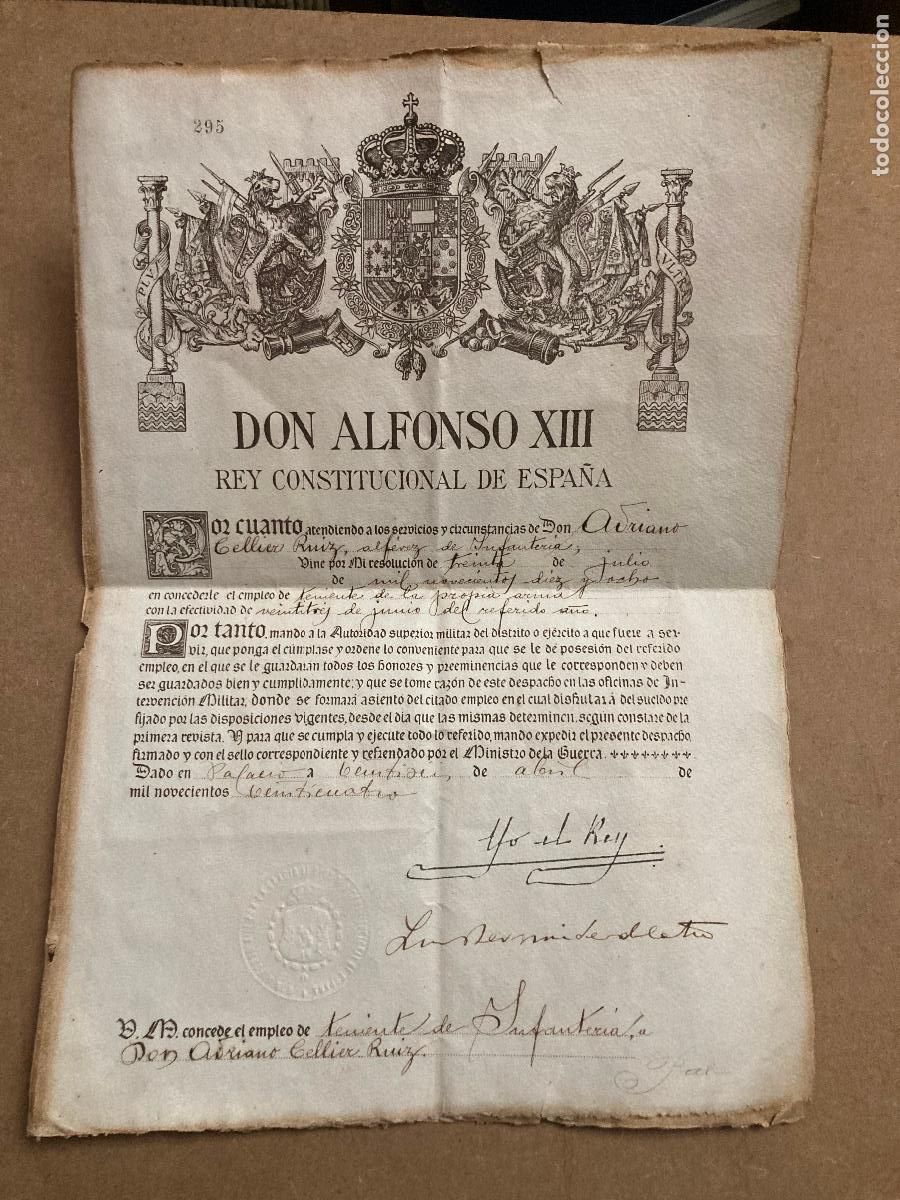 295
PLVS
VLTRA
DON ALFONSO XIII
REY CONSTITUCIONAL DE ESPAÑA
Por cuanto atendiendo a los servicios y circunstancias de Don Adriano
Cellier Ruiz, alférez de Infantería,
Vine por Mi resolución de treinta de julio
de mil novecientos diez y ocho
en concederle el empleo de teniente de la propia arma
con la efectividad de veintitrés de junio del referido año.
Por tanto, mando a la Autoridad superior militar del distrito o ejército a que fuere a ser-
vir, que ponga el cúmplase y ordene lo conveniente para que se le dé posesión del referido
empleo, en el que se le guardarán todos los honores y preeminencias que le corresponden y deben
ser guardados bien y cumplidamente; y que se tome razón de este despacho en las oficinas de In-
tervención Militar, donde se formará asiento del citado empleo en el cual disfrutará del sueldo pre-
fijado por las disposiciones vigentes, desde el día que las mismas determinen, según constare de la
primera revista. Y para que se cumpla y ejecute todo lo referido, mando expedir el presente despacho
firmado y con el sello correspondiente y refrendado por el Ministro de la Guerra.
Dado en Palacio a de abril de
mil novecientos veinticuatro
Yo el Rey
V. M. concede el empleo de teniente de Infantería, a
Don Adriano Cellier Ruiz.
todocoleccion